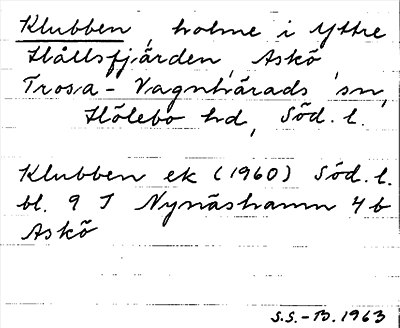 Klubben, holme i Yttre
Hållsfjärden, Askö
Trosa-Vagnhärads sn,
Hölebo hd, Söd. l.
Klubben ek (1960) Söd. l.
bl. 9 I Nynäshamn 4 b
Askö
S.S.-B. 1963